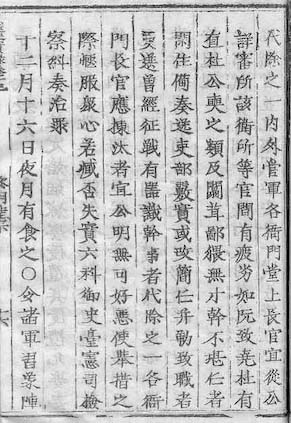 代除之一內外管軍各衙門堂上長官宜從公
詳審所該衛所等官間有疲劣如阮致堯杜有
直杜公奭之類及闒茸鄙猥無才幹不堪任者
閒住備奏送吏部覈實或攺簡任并勒致職者
更選曾經征戰有器識幹事者代除之一各衙
門長官應揀汰者宜公明無可好惡使舉措之
際輒服衆心若臧否失實六科御史臺憲司檢
察糾奏治罪
十二月十六日夜月有食之〇令諸軍習象陣